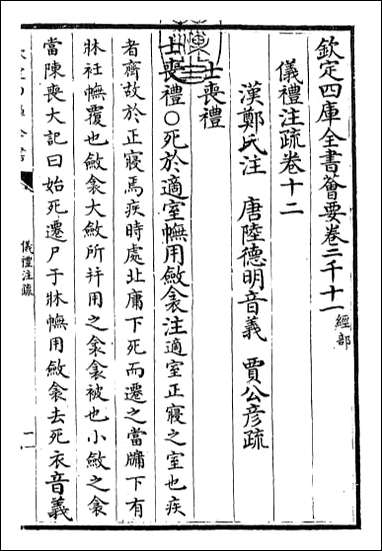 欽定四庫全書薈要卷二千十一 經部
儀禮注疏卷十二
漢鄭氏注 唐陸德明音義 賈公彦疏
士喪禮
士喪禮○死於適室幠用斂衾注適室正寢之室也疾
者齊故於正寢焉疾時處北庸下死而遷之當牖下有
牀衽幠覆也斂衾大斂所并用之衾衾被也小斂之衾
當陳喪大記曰始死遷尸于牀幠用斂衾去死衣音義
儀禮注疏
一